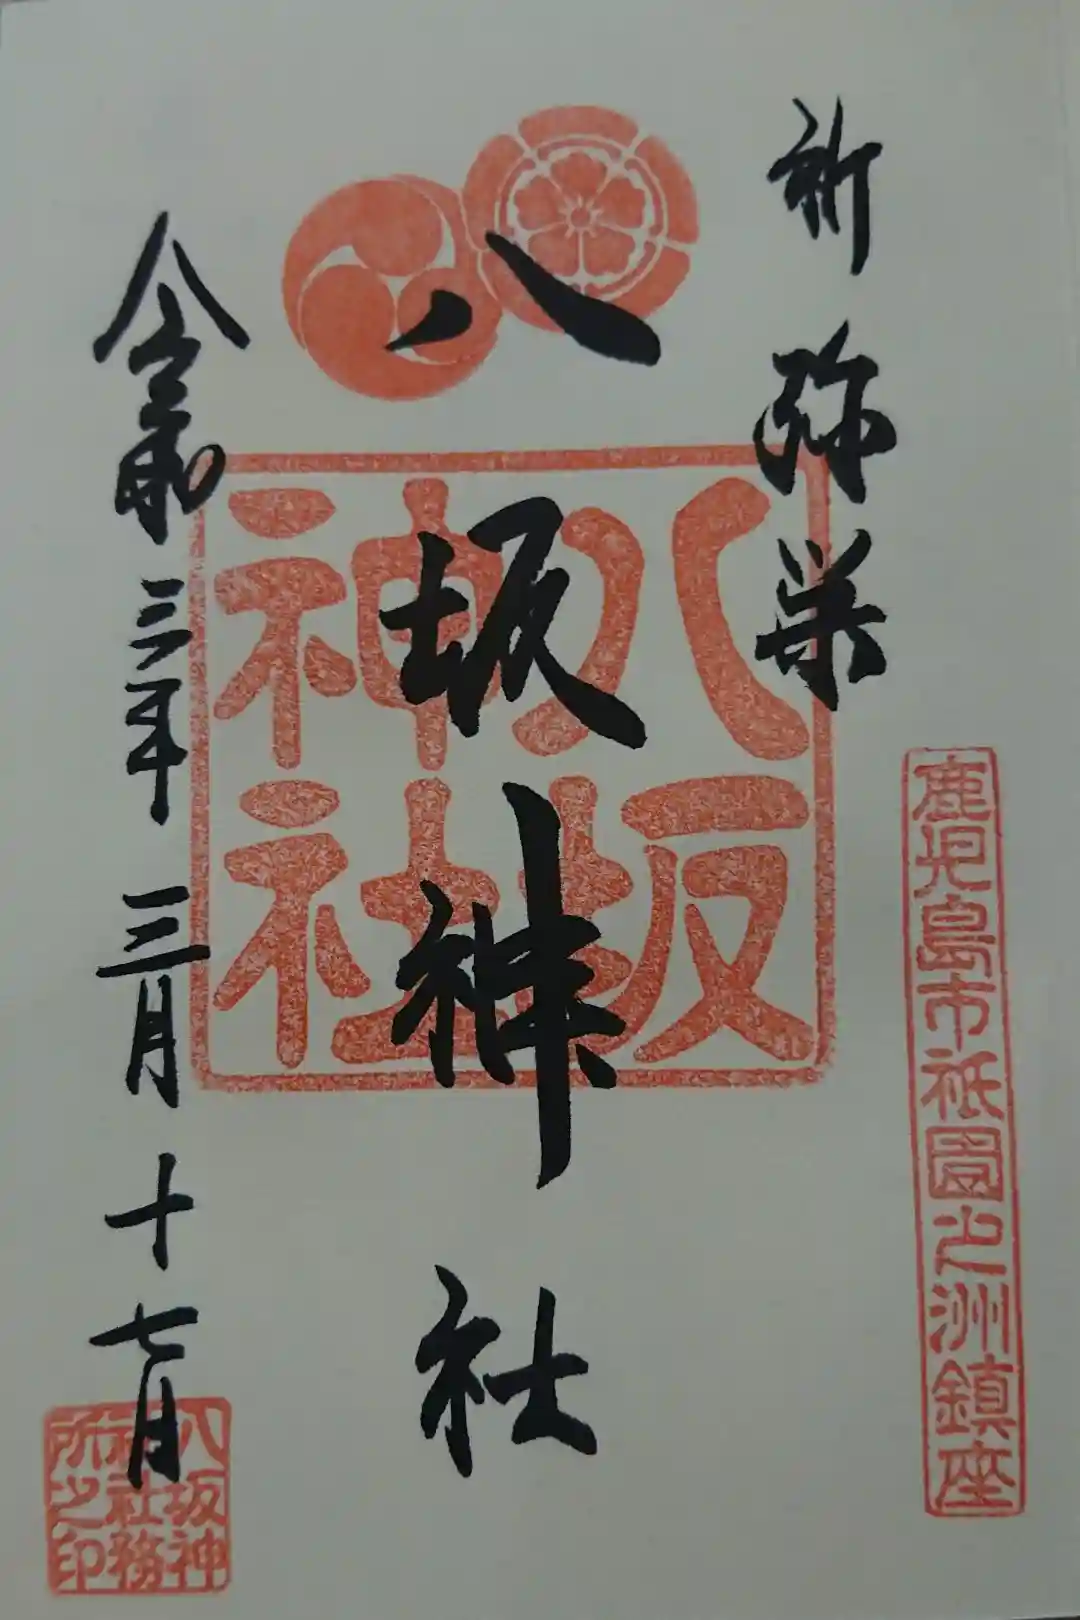 祈弥栄
鹿児島市祇園之洲鎮座
八坂神社
八坂
神社
令和三年三月十七日
八坂神
社社務
所之印